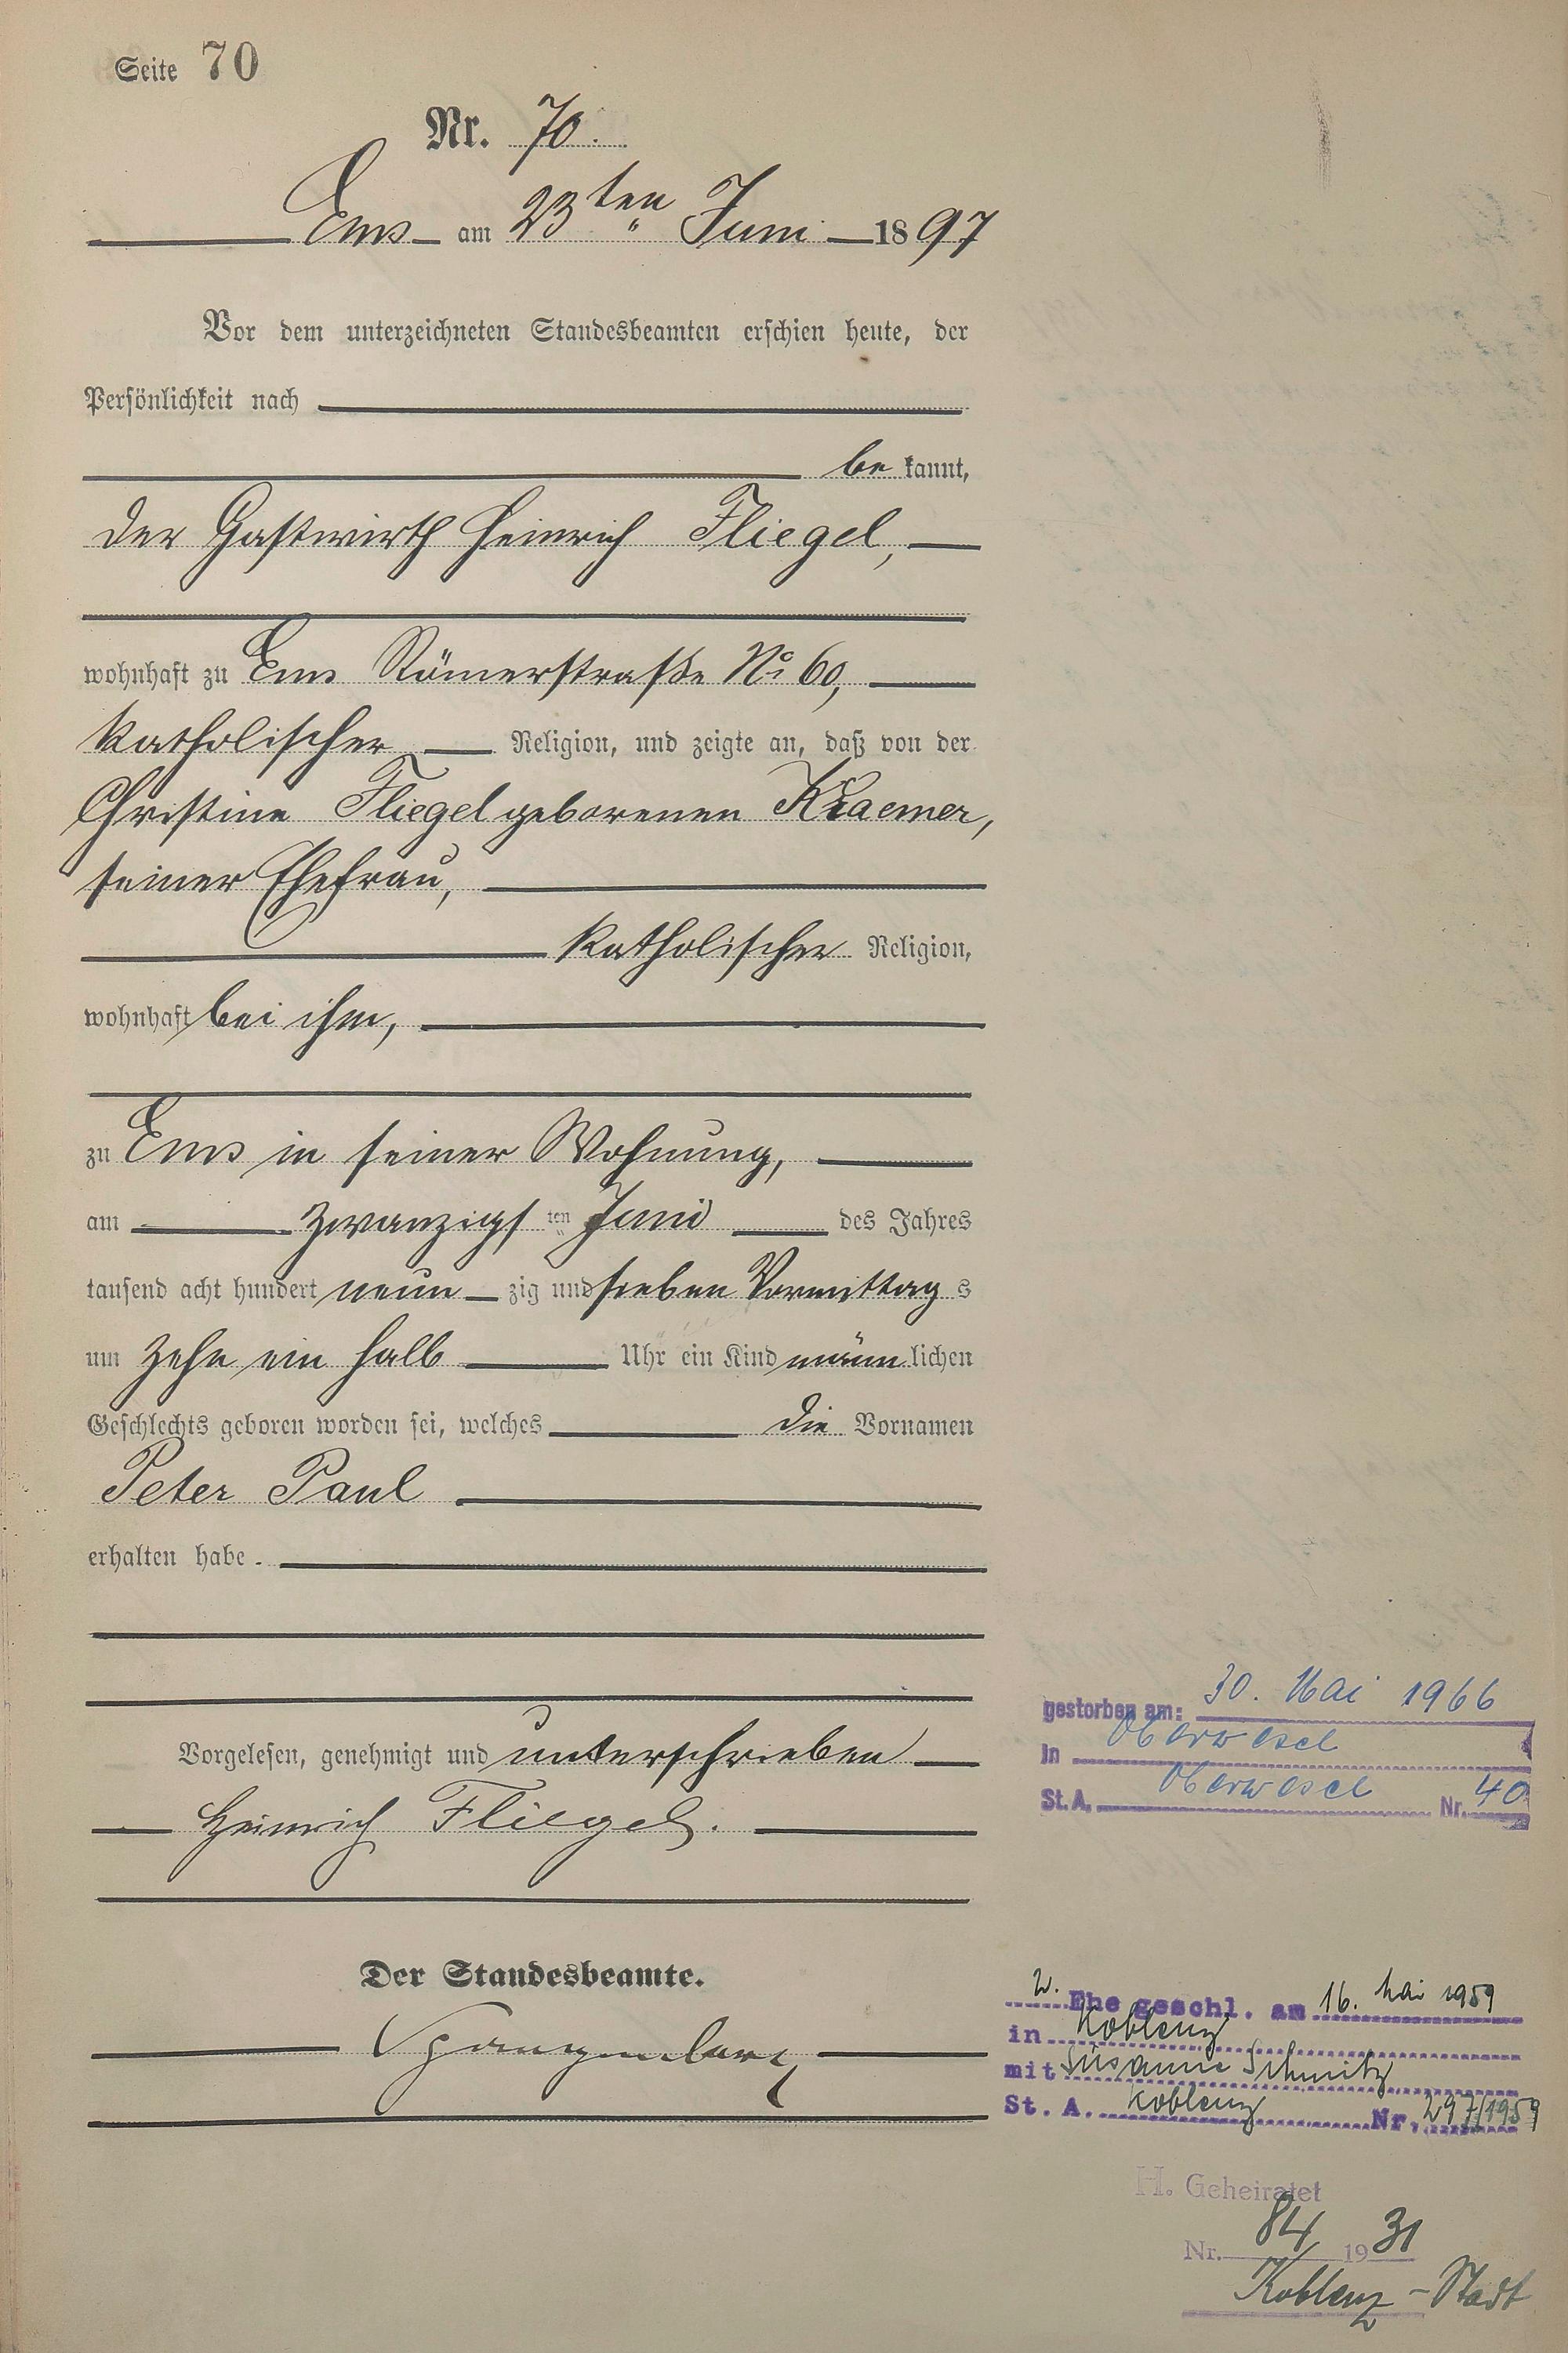 Seite 70
Nr. 70.
Ems am 23ten Juni 1897
Vor dem unterzeichneten Standesbeamten erschien heute, der
Persönlichkeit nach
bekannt,
der Gastwirth Heinrich Fliegel,
wohnhaft zu Ems Römerstraße No 60,
katholischer Religion, und zeigte an, daß von der
Christine Fliegel geborenen Kraemer,
seiner Ehefrau,
katholischer Religion,
wohnhaft bei ihm,
zu Ems in seiner Wohnung,
am zwanzigsten Juni des Jahres
tausend acht hundert neunzig und sieben Vormittags
um zehn ein halb Uhr ein Kind männlichen
Geschlechts geboren worden sei, welches die Vornamen
Peter Paul
erhalten habe.
Vorgelesen, genehmigt und unterschrieben
Heinrich Fliegel.
Der Standesbeamte.
Spangenberg
gestorben am: 30. Mai 1966
in Oberwesel
St.A. Oberwesel Nr. 40
2. Ehe geschl. am 16. Mai 1959
in Koblenz
mit Susanne Schmitz
St. A. Koblenz Nr. 297/1959
H. Geheiratet
Nr. 84 1931
Koblenz-Stadt